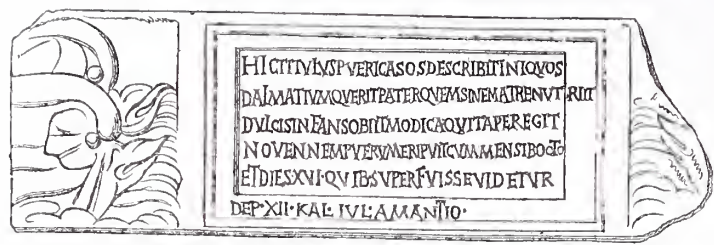 HIC TITVLVS PVERI CASOS DESCRIBIT INIQVOS
DALMATIVM QVERIT PATER QVEM SINE MATRE NVTRIIT
DVLCIS INFANS OBIIT MODICA QVI TAPEREGIT
NOVENNEM PVERVM ERIPVIT CVM MENSIB OCTO
ET DIES XVI · QVIBS VPERFVISSE VIDETVR
DEP · XII · KAL · IVL · AMANTIO ·